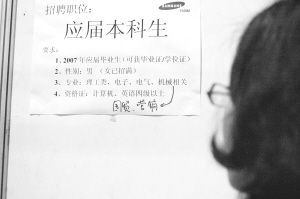 招聘职位:
SAMSUNG
应届本科生
要求:
1. 2007年应届毕业生(可获毕业证/学位证)
2. 性别: 男 (女已招满)
3. 专业: 理工类、电子、电气、机械相关
4. 资格证: 计算机、英语四级以上
国贸、营销